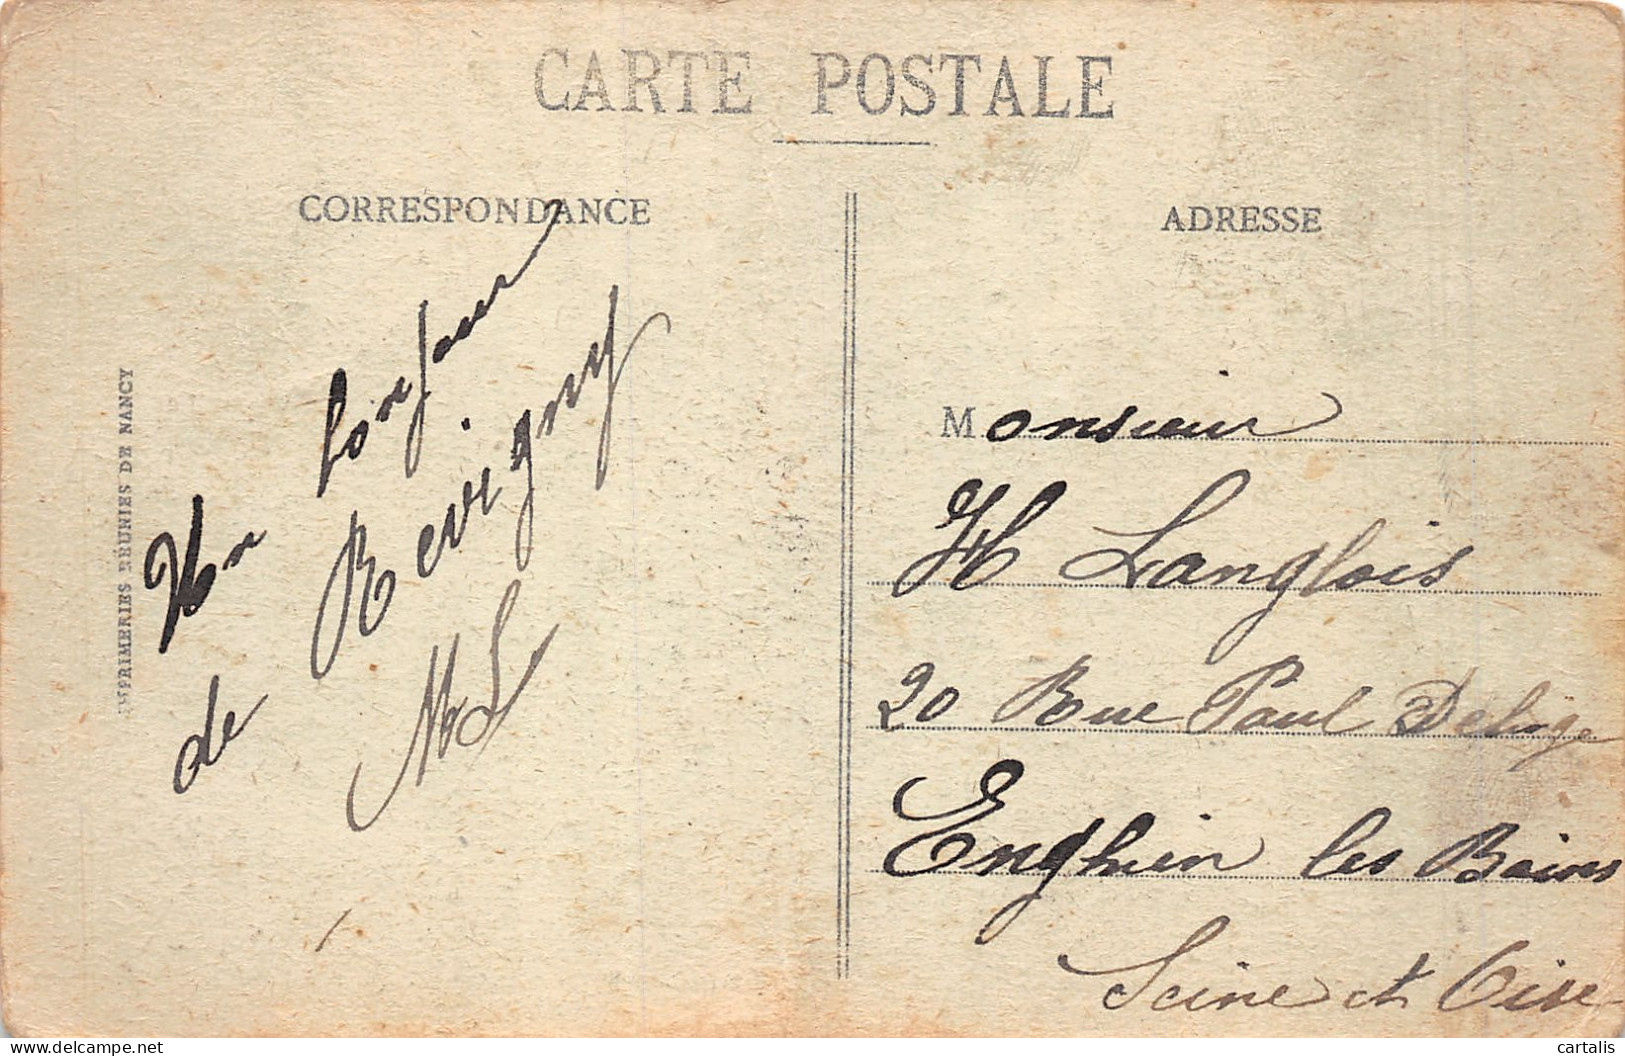 CARTE POSTALE
CORRESPONDANCE
ADRESSE
Un bonjour
de Revigny
ML
IMPRIMERIES RÉUNIES DE NANCY
Monsieur
H Langlois
20 Rue Paul Delinge
Enghien les Bains
Seine et Oise
www.delcampe.net
cartalis